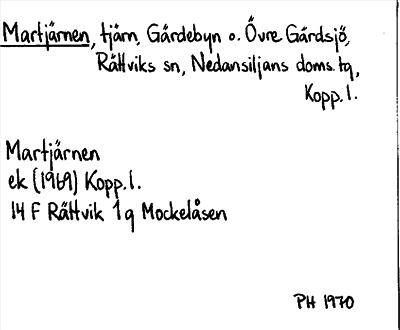 Martjärnen, tjärn, Gärdebyn o. Övre Gärdsjö,
Rättviks sn, Nedansiljans doms. tg,
Kopp. l.
Martjärnen
ek (1969) Kopp. l.
14 F Rättvik 1 g Mockelåsen
PH 1970